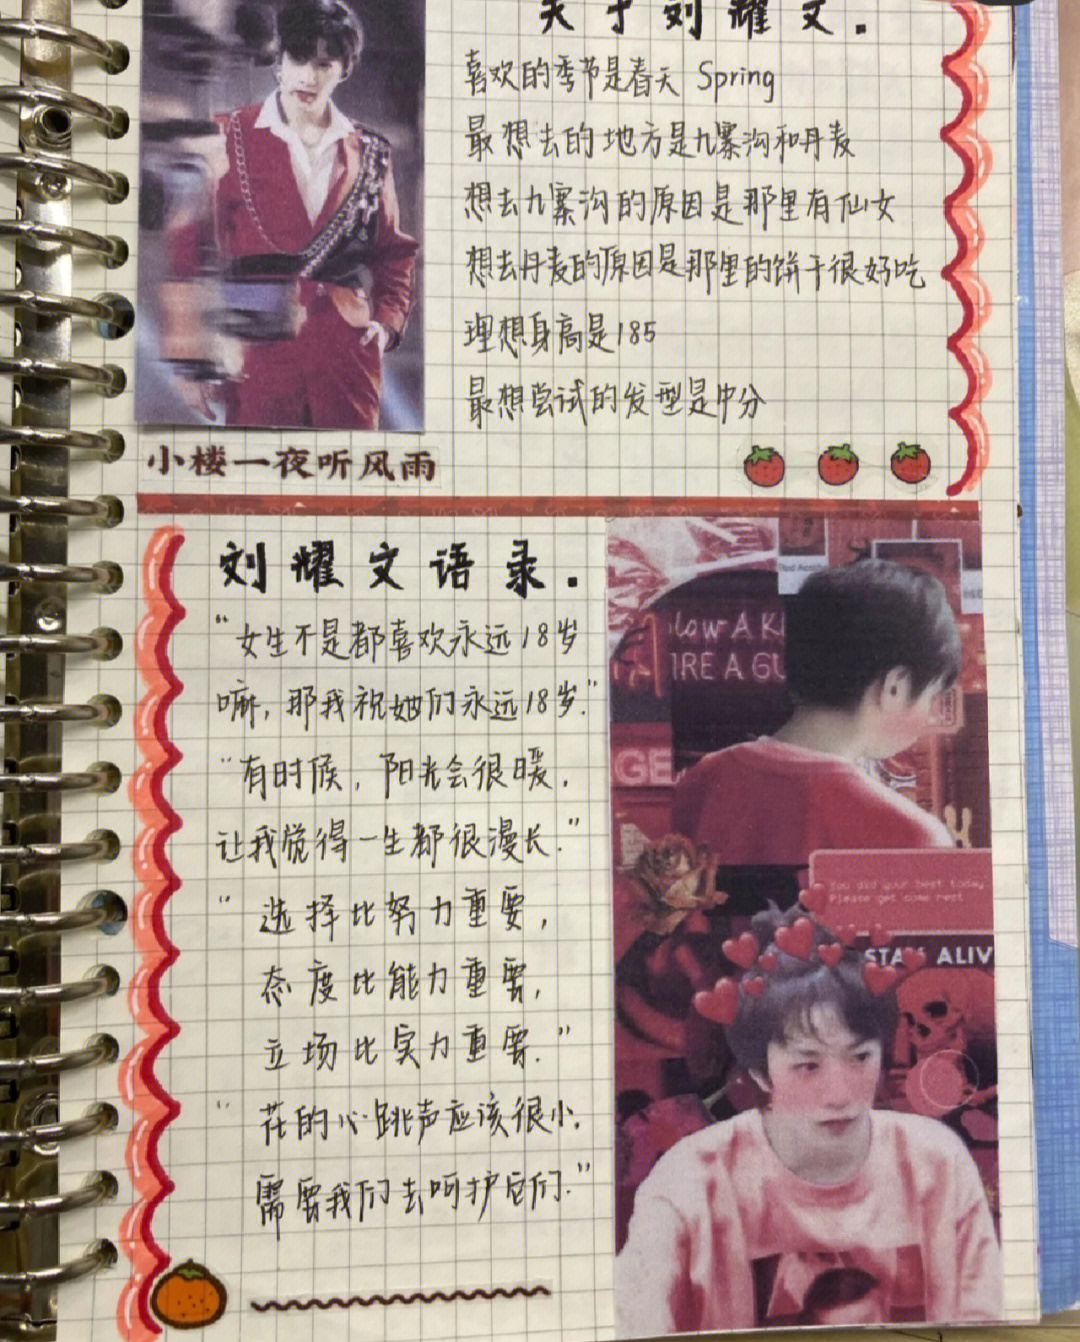 关于刘耀文.
喜欢的季节是春天 Spring
最想去的地方是九寨沟和丹麦
想去九寨沟的原因是那里有仙女
想去丹麦的原因是那里的饼干很好吃
理想身高是185
最想尝试的发型是中分
小楼一夜听风雨
刘耀文语录.
“女生不是都喜欢永远18岁
嘛,那我祝她们永远18岁.”
“有时候,阳光会很暖,
让我觉得一生都很漫长.”
“选择比努力重要,
态度比能力重要,
立场比实力重要.”
“花的心跳声应该很小,
需要我们去呵护它们.”
LOW A KI
IRE A GU
GE
You did your best today
Please get some rest
STAY ALIV